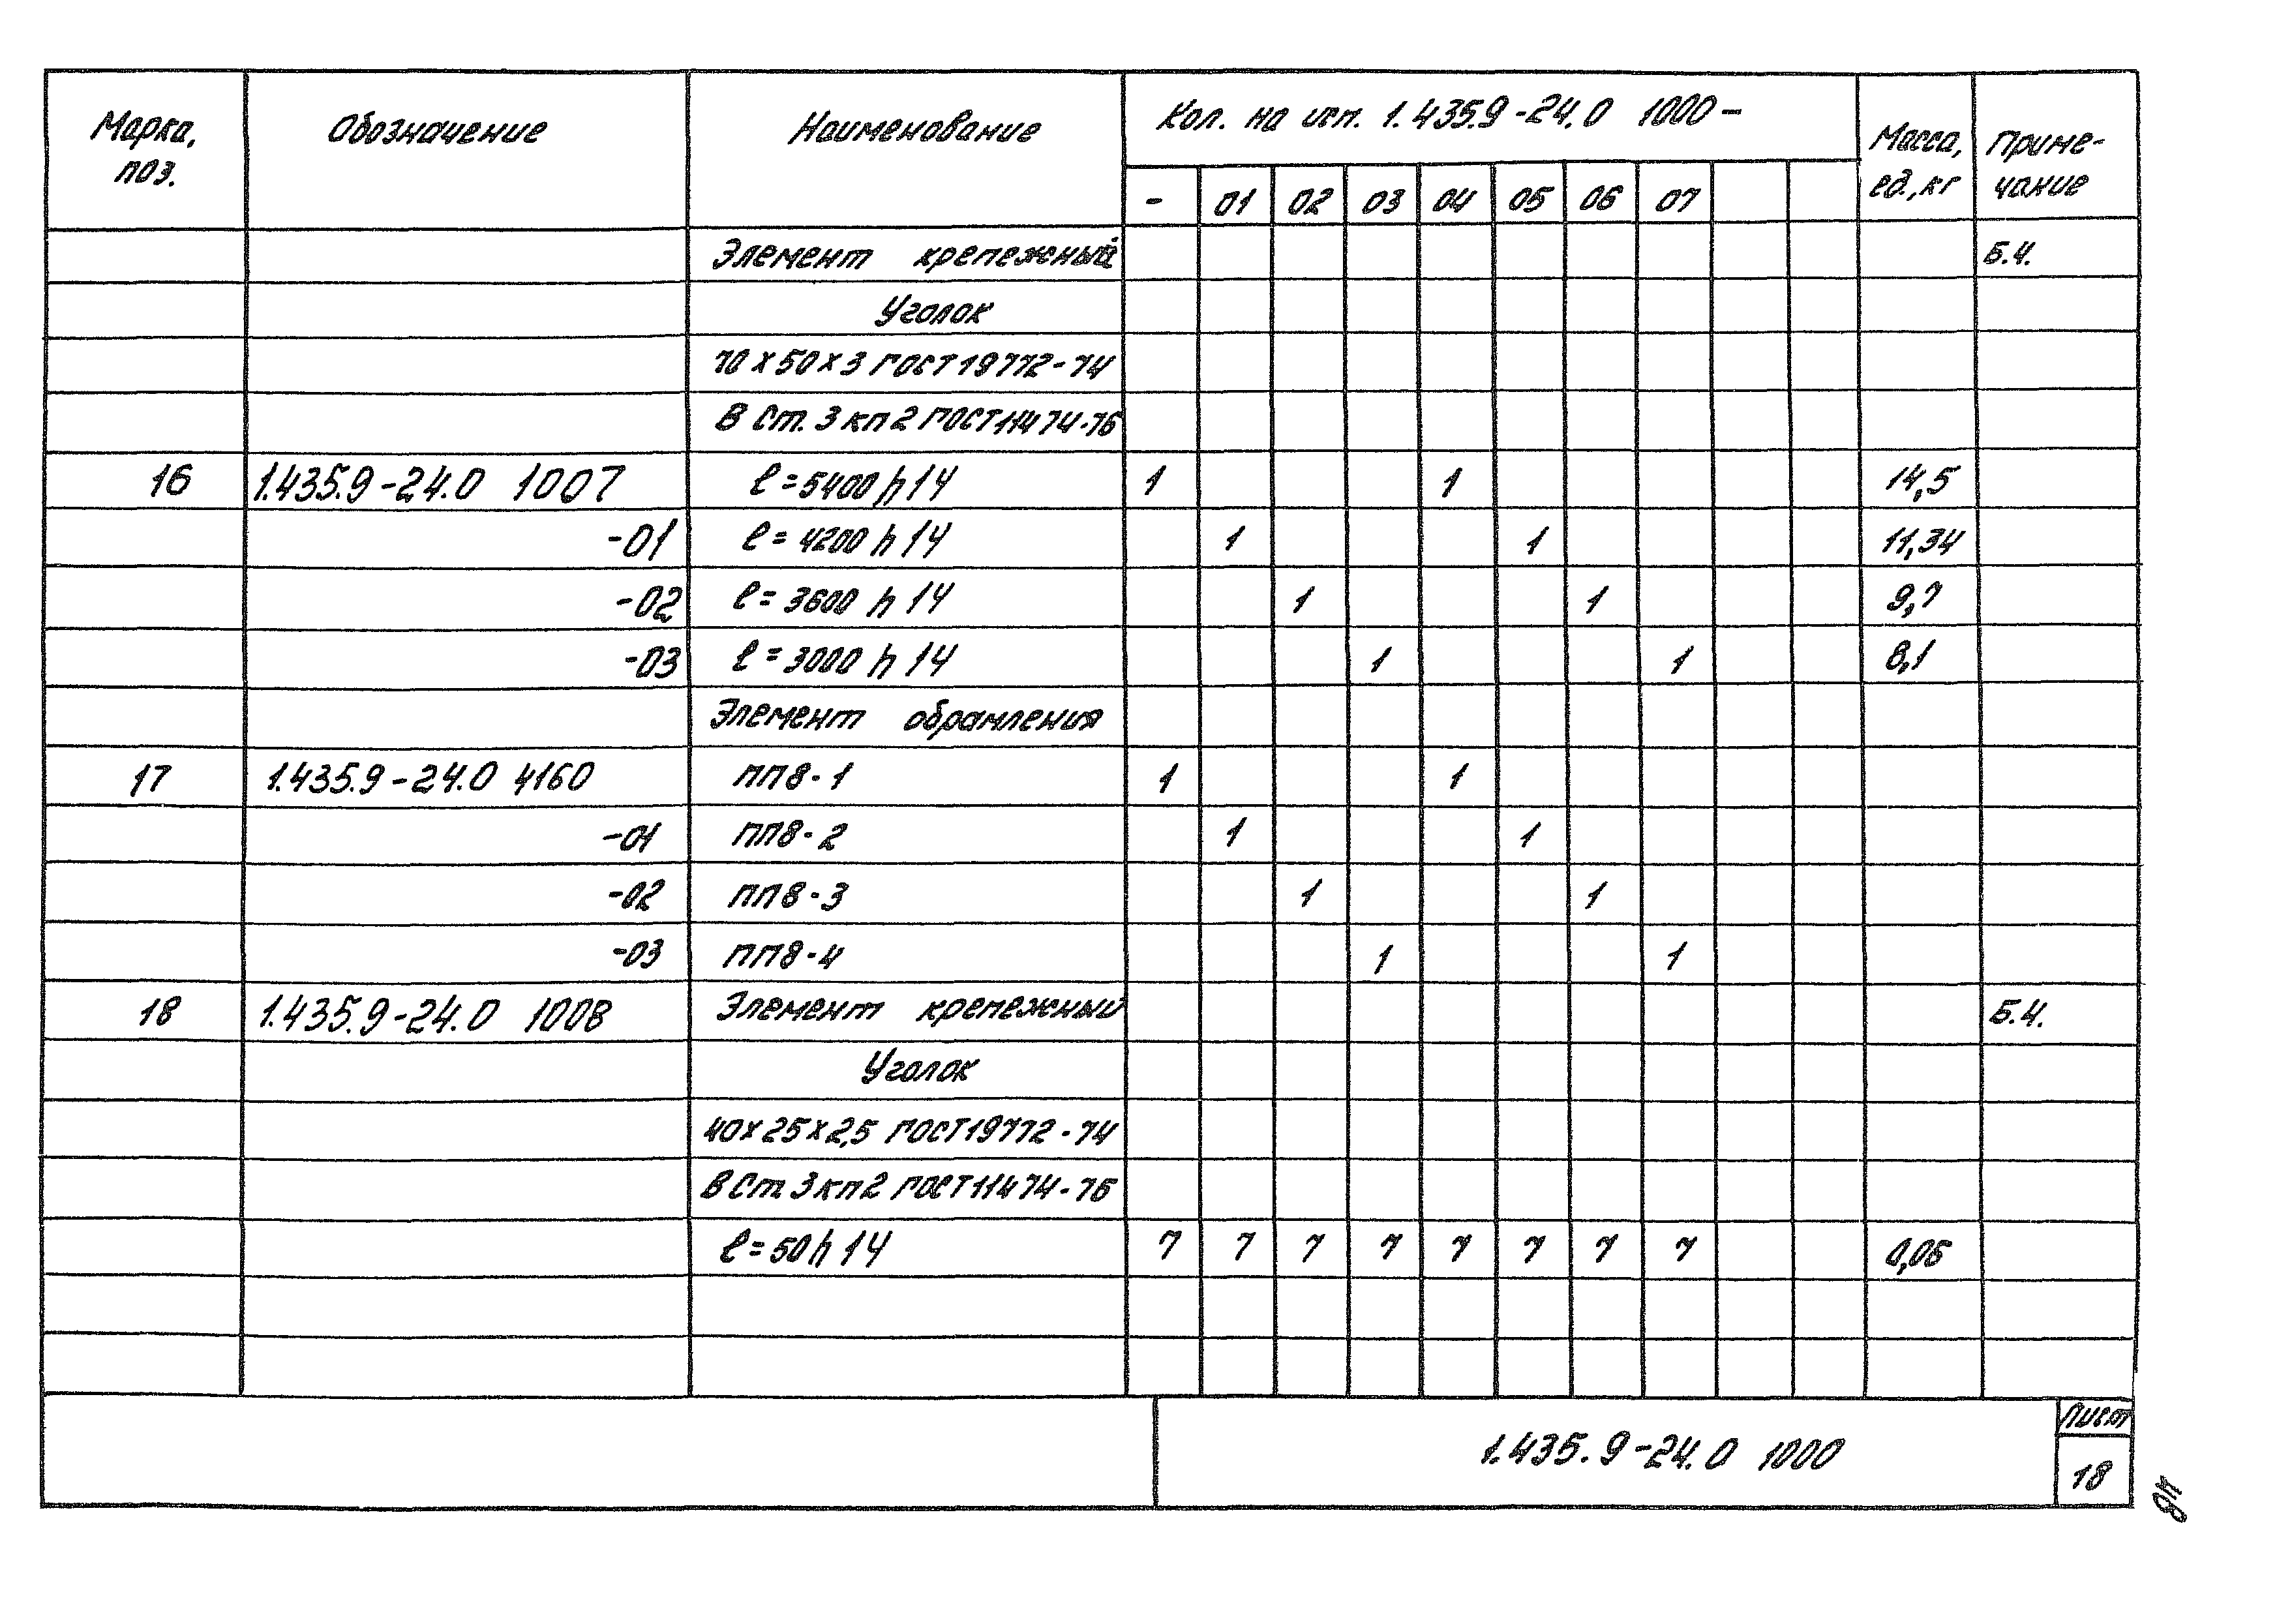 Марка, поз. Обозначение Наименование Кол. на исп. 1.435.9-24.0 1000- Масса, ед.,кг Приме-чание
- 01 02 03 04 05 06 07
Элемент крепежный Б.Ч.
Уголок
70х50х3 ГОСТ19772-74
В Ст.3кп2 ГОСТ11474-76
16 1.435.9-24.0 1007 ℓ=5400h14 1 1 14,5
-01 ℓ=4200h14 1 1 11,34
-02 ℓ=3600h14 1 1 9,7
-03 ℓ=3000h14 1 1 8,1
Элемент обрамления
17 1.435.9-24.0 4160 ПП8-1 1 1
-01 ПП8-2 1 1
-02 ПП8-3 1 1
-03 ПП8-4 1 1
18 1.435.9-24.0 1008 Элемент крепежный Б.Ч.
Уголок
40х25х2,5 ГОСТ19772-74
ВСт.3кп2 ГОСТ11474-76
ℓ=50h14 7 7 7 7 7 7 7 7 0,06
1.435.9-24.0 1000 Лист
18